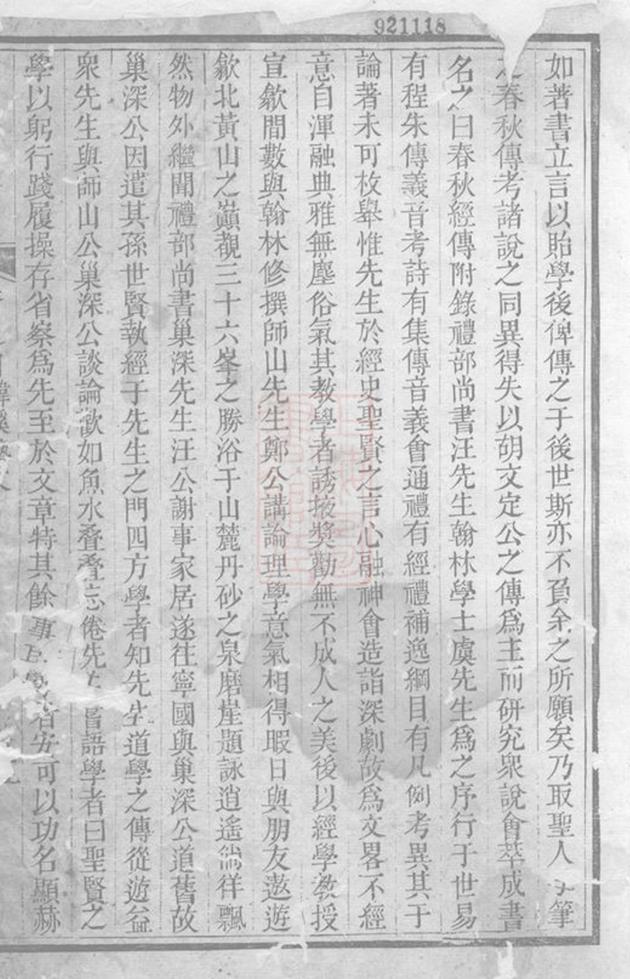 921118
如著書立言以貽學後俾傳之于後世斯亦不負余之所願矣乃取聖人手筆
之春秋傳考諸說之同異得失以胡文定公之傳爲主而研究衆說會萃成書
名之曰春秋經傳附錄禮部尚書汪先生翰林學士虞先生爲之序行于世易
有程朱傳義音考詩有集傳音義會通禮有經禮補逸綱目有凡例考異其于
論著未可枚舉惟先生於經史聖賢之言心融神會造詣深劇故爲文畧不經
意自渾融典雅無塵俗氣其教學者誘掖奬勸無不成人之美後以經學教授
宣歙間數與翰林修撰師山先生鄭公講論理學意氣相得暇日與朋友遨遊
歙北黃山之巓觀三十六峯之勝浴于山麓丹砂之泉磨崖題詠逍遙徜徉飄
然物外繼聞禮部尚書巢深先生汪公謝事家居遂往寧國與巢深公道舊故
巢深公因遣其孫世賢執經于先生之門四方學者知先生道學之傳從遊益
衆先生與師山公巢深公談論歡如魚水亹亹忘倦先生嘗語學者曰聖賢之
學以躬行踐履操存省察爲先至於文章特其餘事且學者安可以功名顯赫